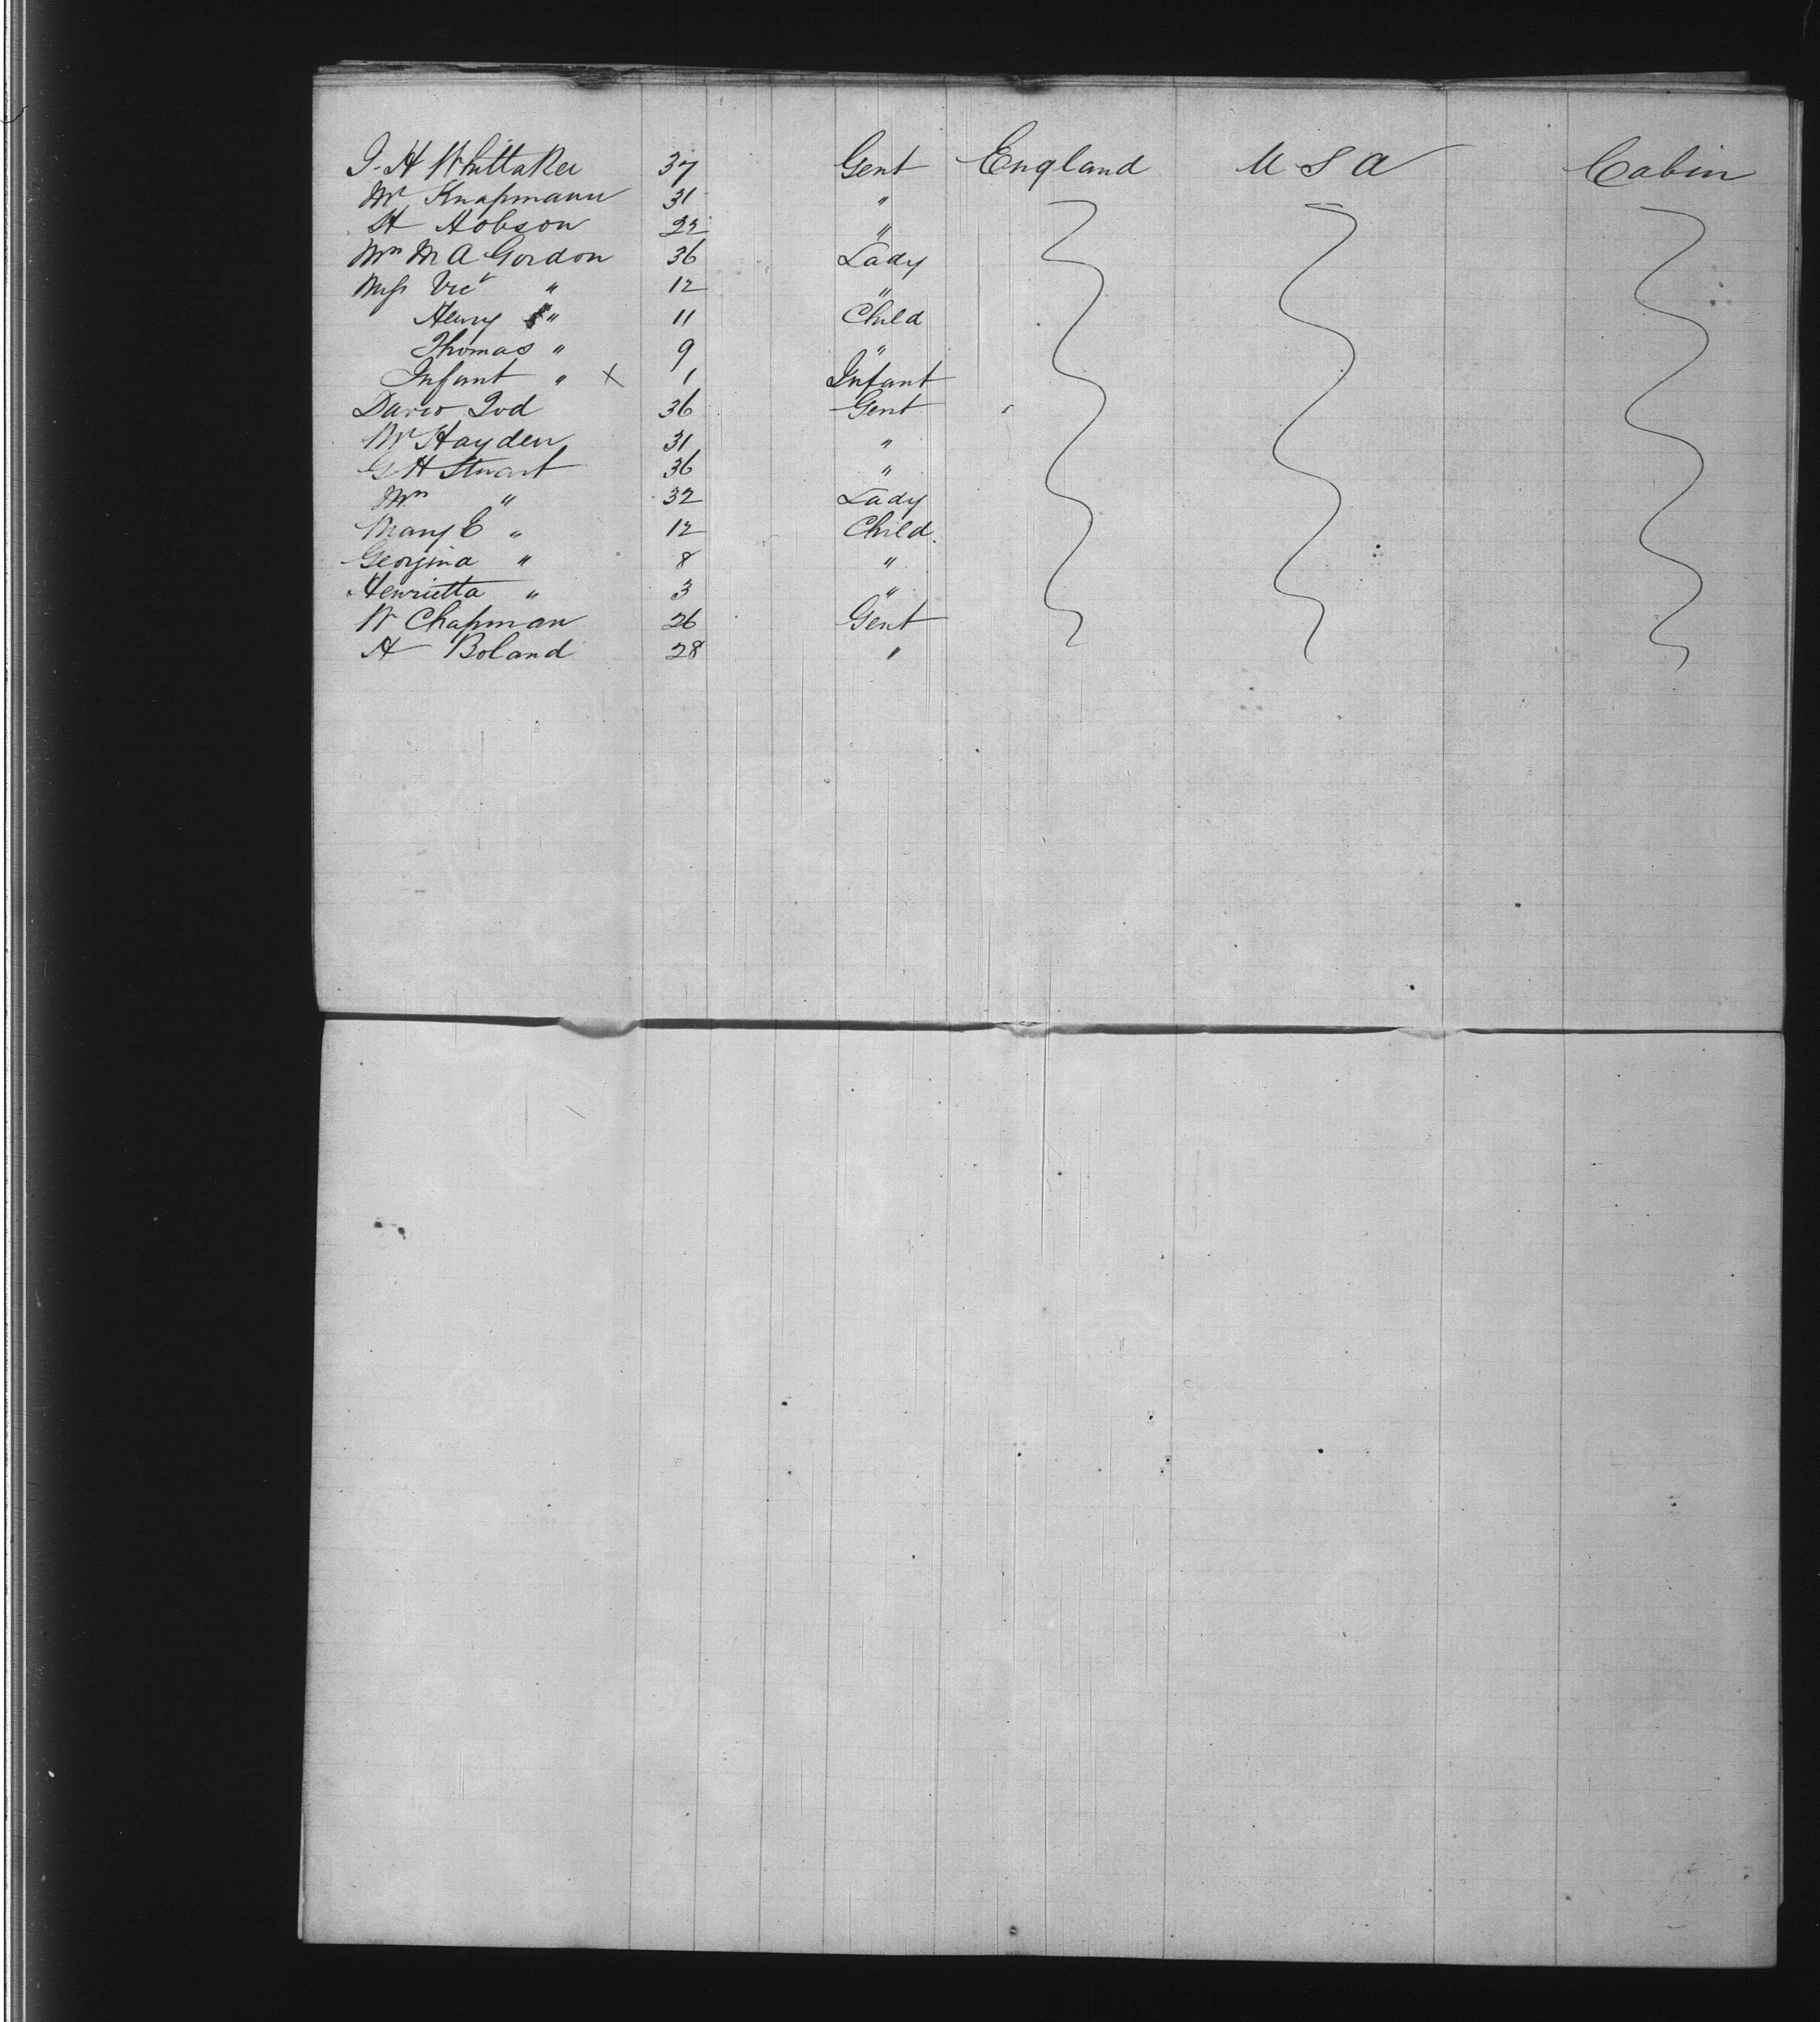 J. H Whittaker 37 Gent England U S A Cabin
Mr Knapmann 31 "
H Hobson 22 "
Mrs M A Gordon 36 Lady
Miss Vic " 12 "
Henry " 11 Child
Thomas " 9 "
Infant " X 1 Infant
Dario 36 Gent
Mr Hayden 31 "
G H Stuart 36 "
Mrs " 32 Lady
Mary E " 12 Child.
Georgina " 8 "
Henrietta " 3 "
W Chapman 26 Gent
H Boland 28 "